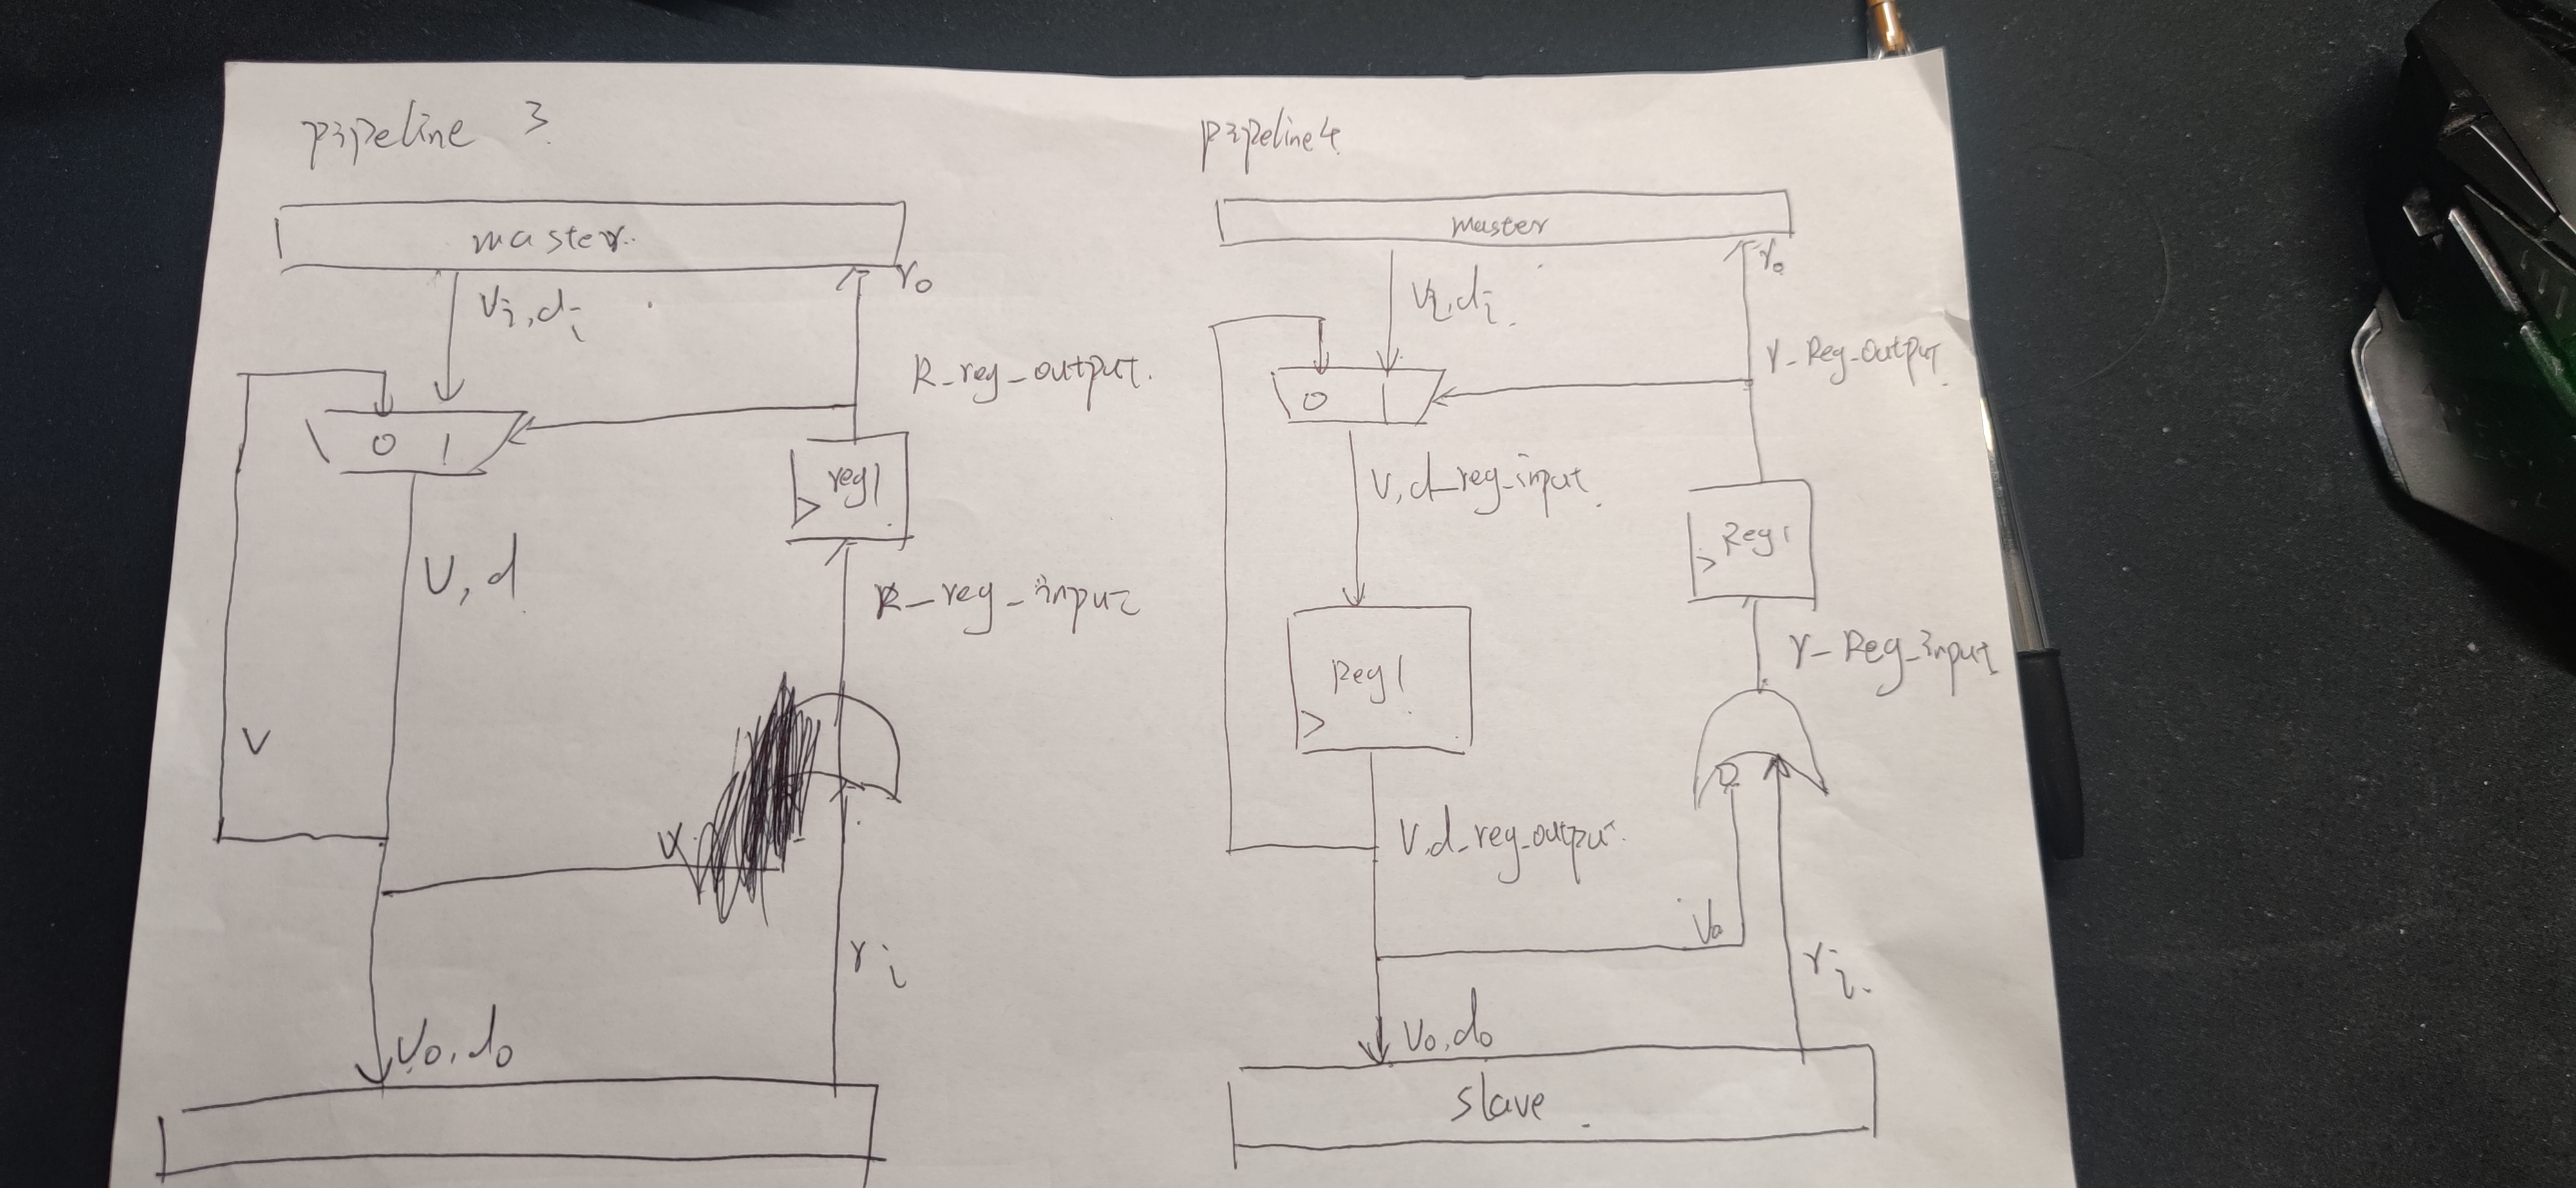 pipeline 3.
master.
Vi, di
ro
R_reg_output.
0 1
reg1
V, d
R_reg_input
V
V
ri
Vo, do
pipeline4
master
Vi, di.
ro
r_Reg_output
0 1
V, d_reg_input
Reg1
Reg1
r_Reg_input
V,d_reg_output.
Vo
ri.
Vo, do
slave